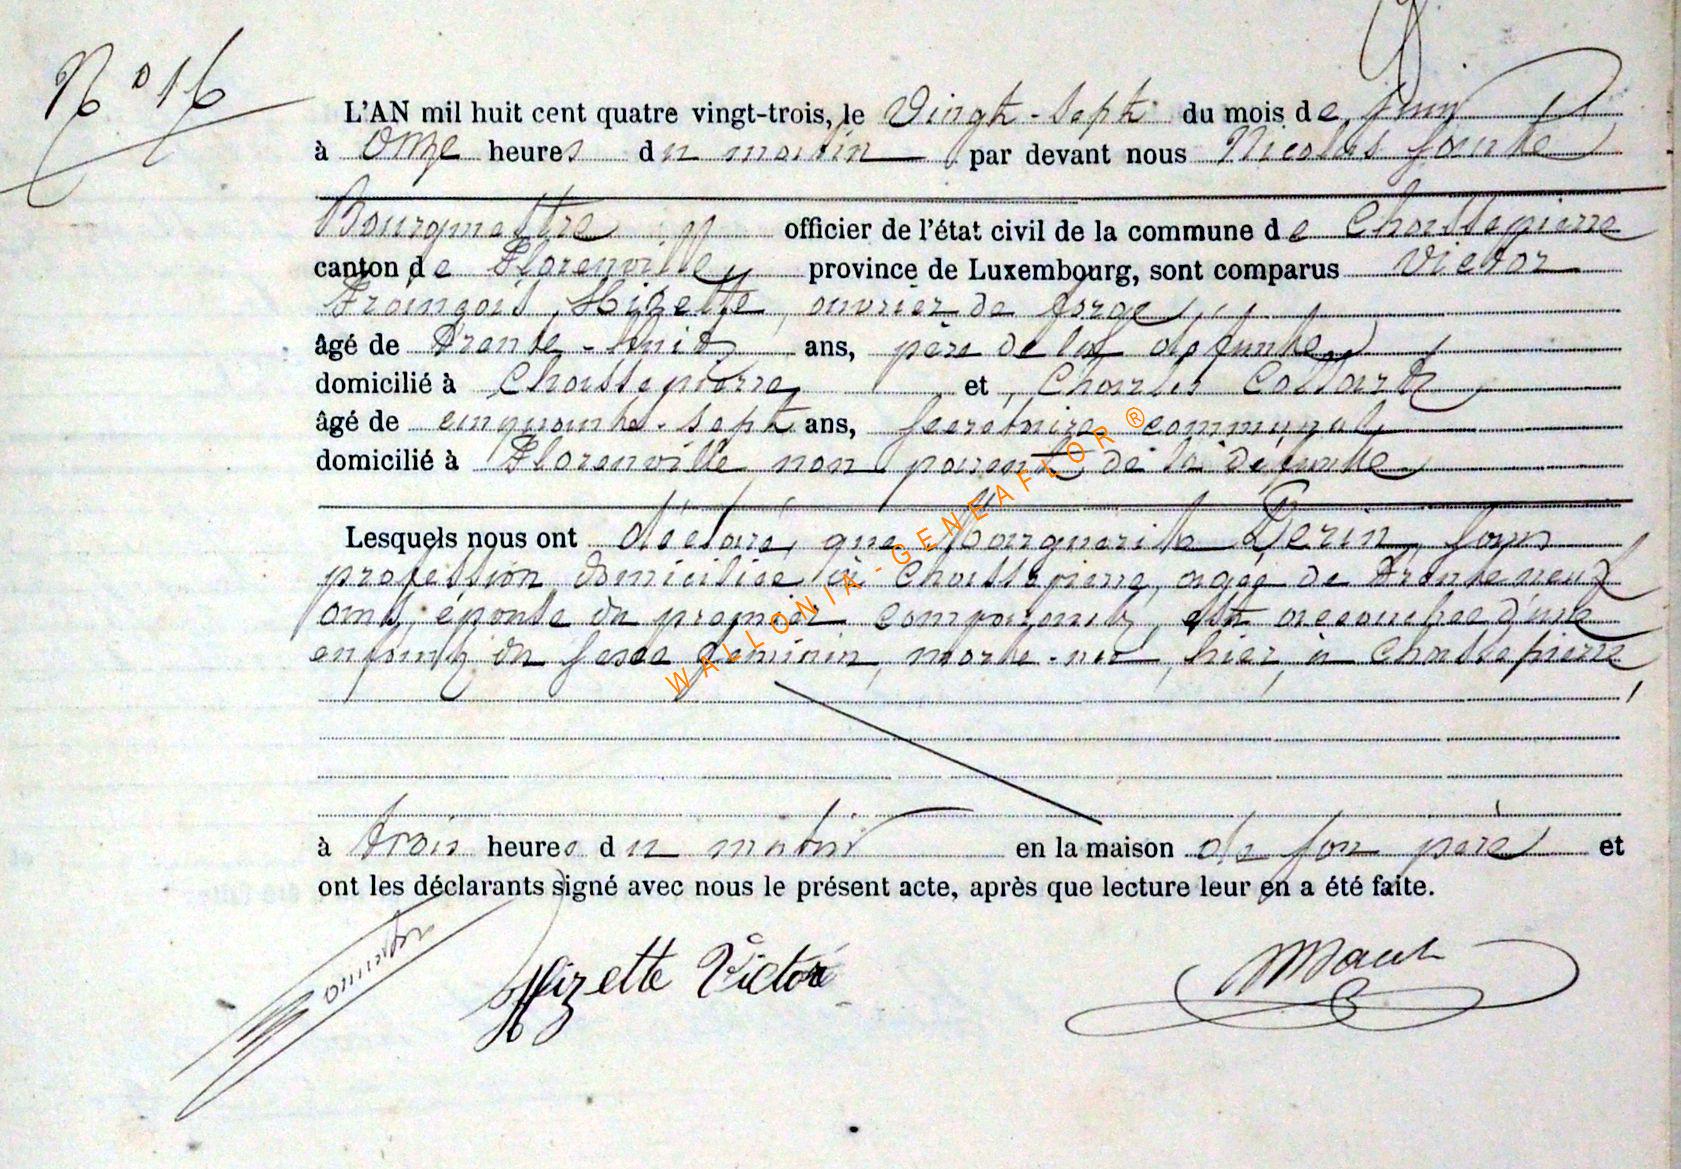 N° 16
L'AN mil huit cent quatre vingt-trois, le Vingt-sept du mois de Juin
à Onze heures du matin par devant nous Nicolas
Bourgmestre officier de l'état civil de la commune de Chassepierre
canton de Florenville province de Luxembourg, sont comparus Victor
François Hizette, ouvrier de forge,
âgé de Trente-huit ans, père de la défunte
domicilié à Chassepierre et Charles Collard
âgé de cinquante-sept ans, secretaire communal
domicilié à Florenville non parent de la défunte
Lesquels nous ont déclaré, que Marguerite Perin, sans
profession domiciliée à Chassepierre, agée de Trente neuf
ans, épouse du premier comparant, est accouchée d'une
enfant du sexe féminin, morte-née, hier, à Chassepierre,
à trois heures du matin en la maison de son père et
ont les déclarants signé avec nous le présent acte, après que lecture leur en a été faite.
Hizette Victor
WALLONIA-GENEAFLOR ®